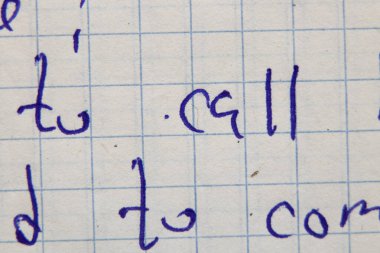 to call
d to com